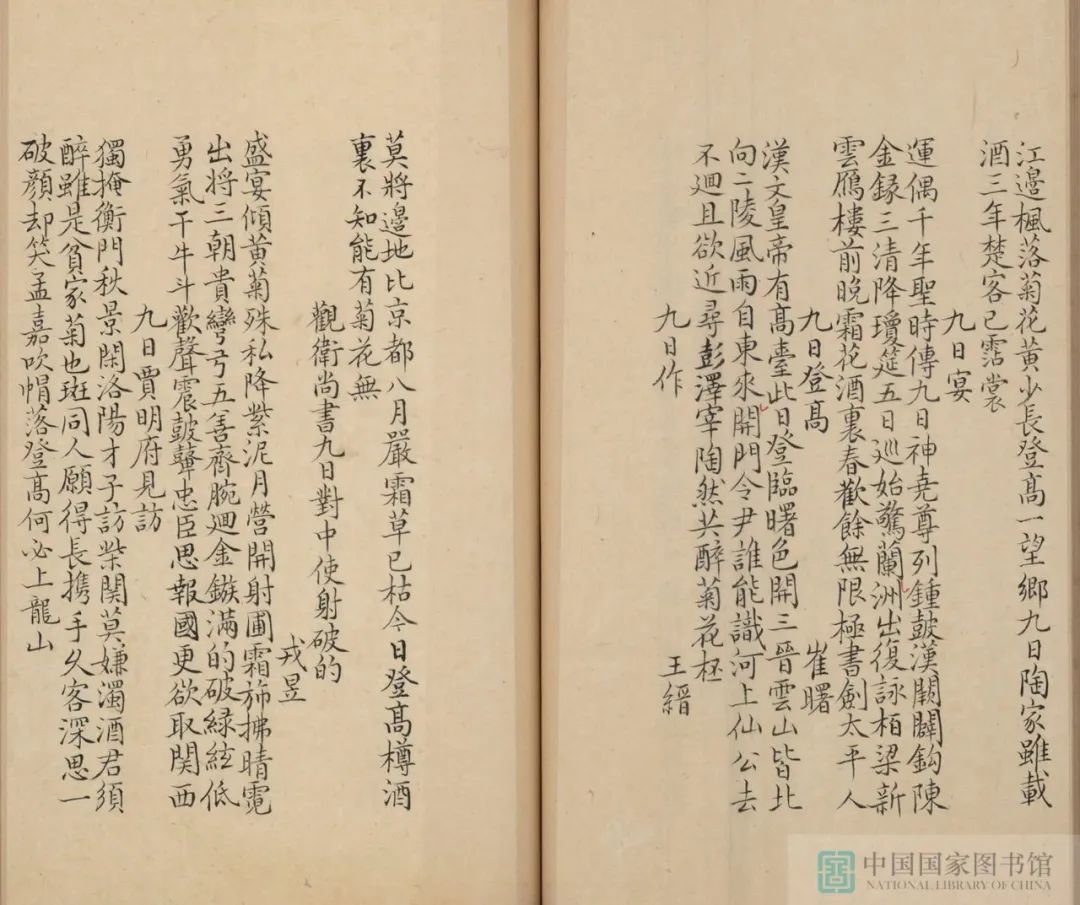 江邊楓落菊花黃少長登髙一望鄉九日陶家雖載
酒三年楚客已霑裳
九日宴
運偶千年聖時傳九日神堯尊列鍾鼓漢闕闢鈎陳
金録三清降瓊筵五日巡始驚蘭洲出復詠栢梁新
雲鴈樓前晚霜花酒裏春歡餘無限極書劍太平人
九日登髙 崔曙
漢文皇帝有髙臺此日登臨曙色開三晉雲山皆北
向二陵風雨自東來開門令尹誰能識河上仙公去
不廻且欲近尋彭澤宰陶然共醉菊花柸
九日作 王縉
莫將邊地比京都八月嚴霜草已枯今日登髙樽酒
裏不知能有菊花無
觀衛尚書九日對中使射破的
戎昱
盛宴傾黃菊殊私降紫泥月營開射圃霜斾拂晴霓
出將三朝貴彎弓五善齊腕廻金鏃滿的破緑絃低
勇氣干牛斗歡聲震皷鼙忠臣思報國更欲取関西
九日賈明府見訪
獨掩衡門秋景閑洛陽才子訪柴関莫嫌濁酒君須
醉雖是貧家菊也斑同人願得長携手久客深思一
破顔却笑孟嘉吹帽落登髙何必上龍山
中国国家图书馆
NATIONAL LIBRARY OF CHINA